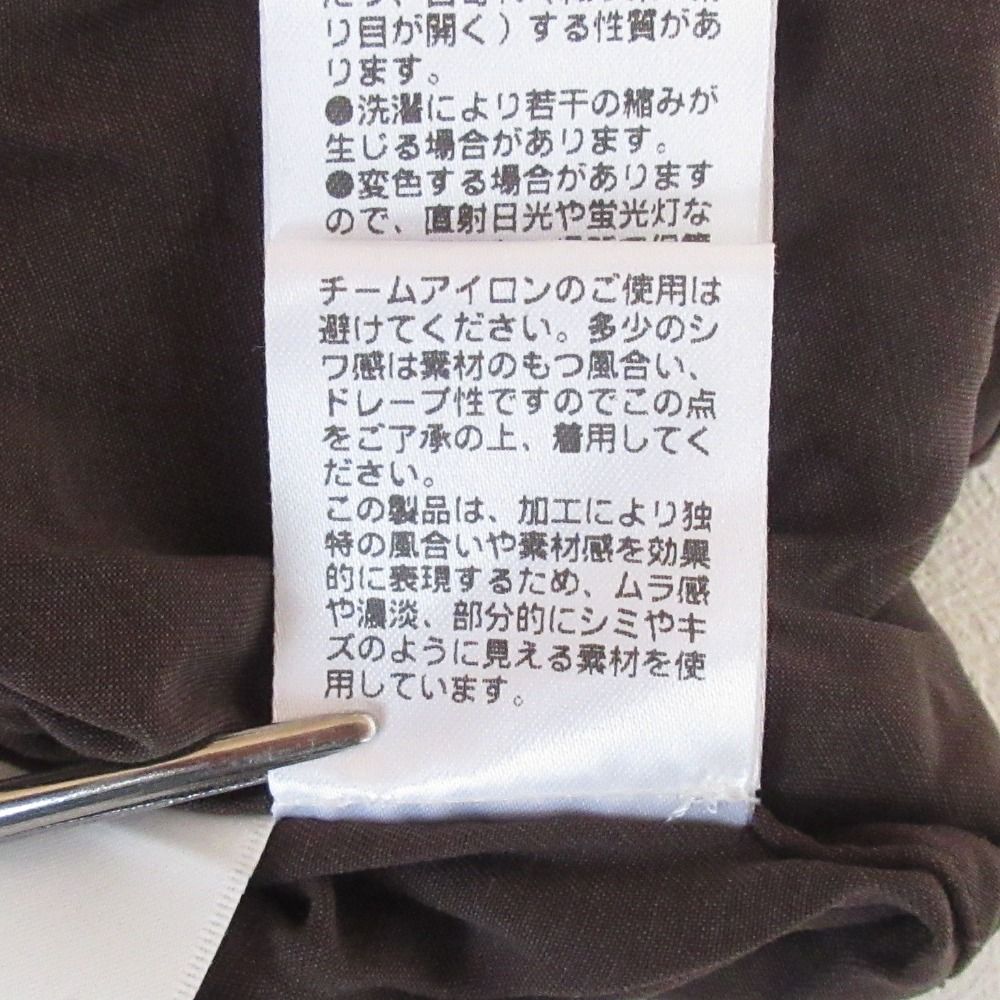 り目が開く）する性質があ
ります。
●洗濯により若干の縮みが
生じる場合があります。
●変色する場合があります
ので、直射日光や蛍光灯な
チームアイロンのご使用は
避けてください。多少のシ
ワ感は素材のもつ風合い、
ドレープ性ですのでこの点
をご了承の上、着用してく
ださい。
この製品は、加工により独
特の風合いや素材感を効果
的に表現するため、ムラ感
や濃淡、部分的にシミやキ
ズのように見える素材を使
用しています。